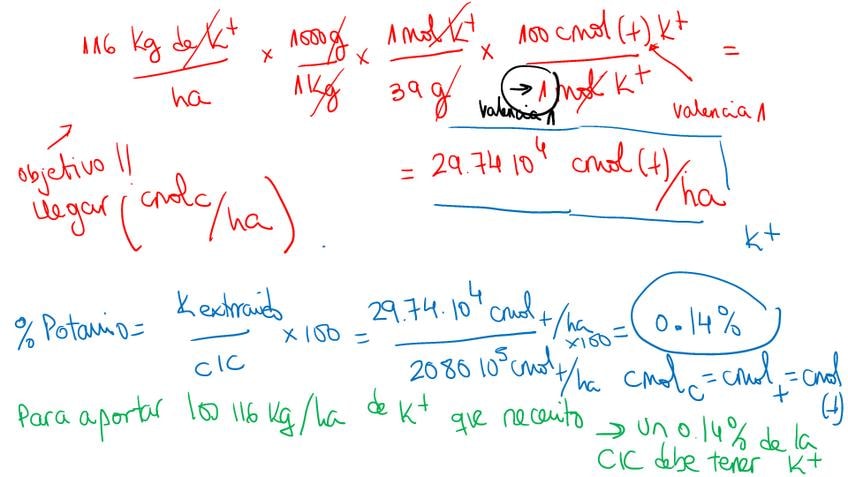 116 kg de K+ / ha × 1000g / 1kg × 1 mol K+ / 39 g × 100 cmol (+) K+ / → 1 mol K+ =
valencia 1
valencia 1
objetivo !!
llegar (cmolc/ha)
= 29.74 10^4 cmol(+)/ha
K+
% Potasio = K extraido / CIC × 100 = 29.74.10^4 cmol+/ha / 2080 10^5 cmol+/ha ×100 = 0.14%
cmolc = cmol+ = cmol (+)
Para aportar 100 116 kg/ha de K+ que necesito → un 0.14% de la
CIC debe tener K+